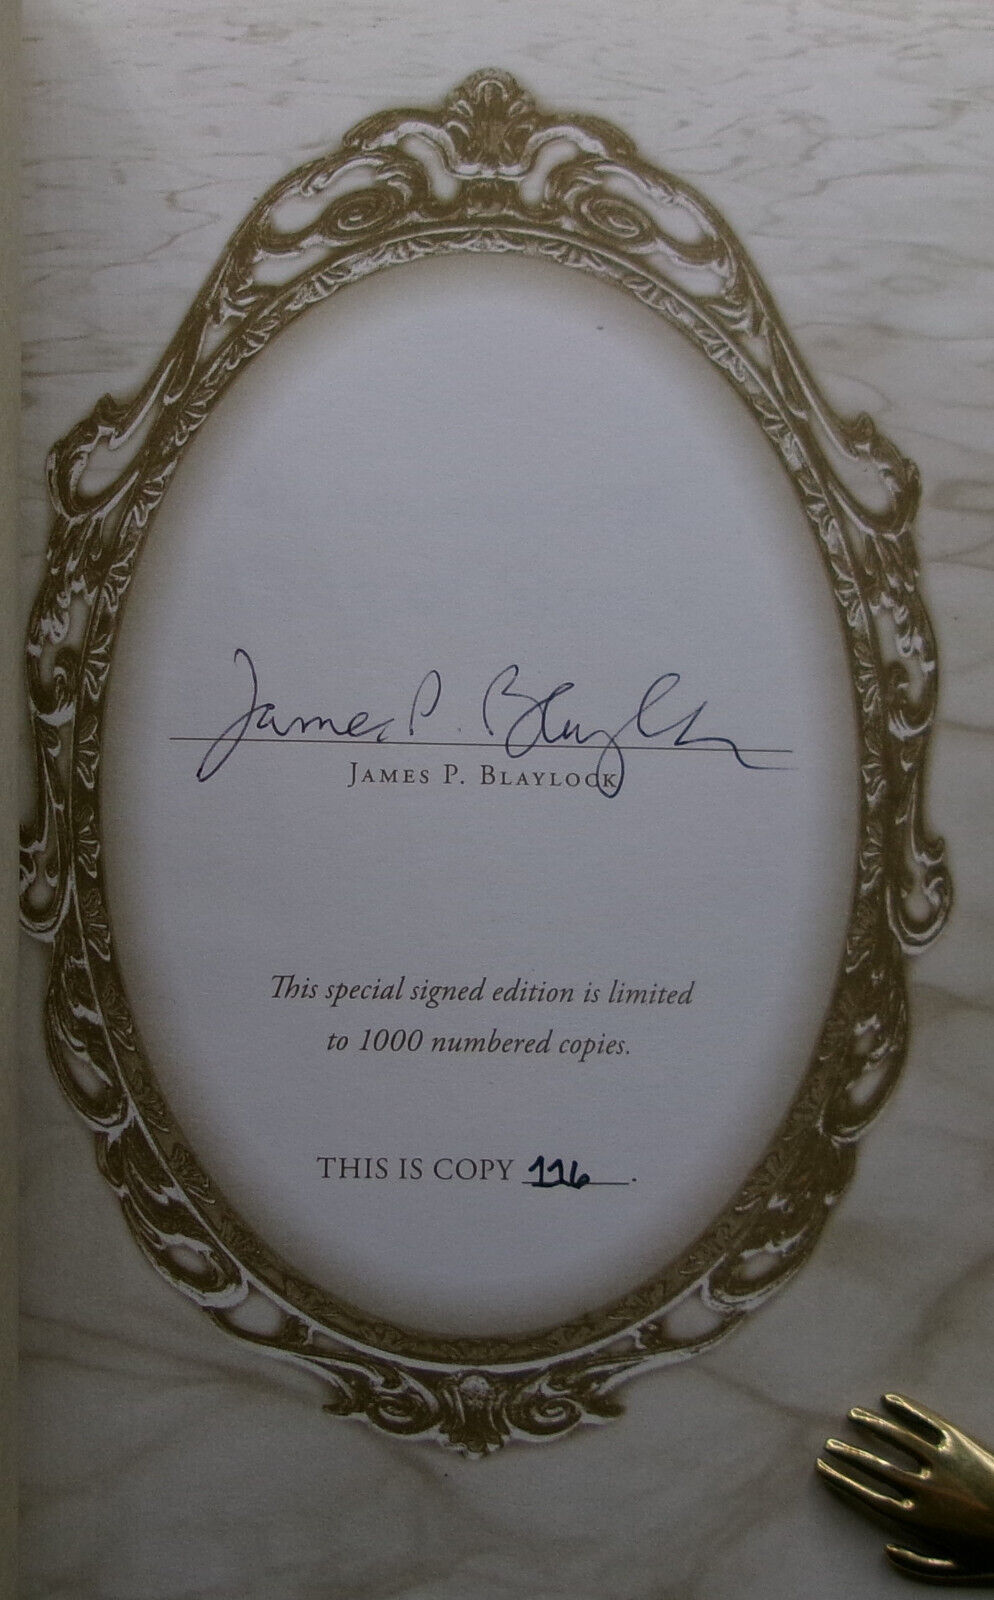 James P. Blaylock
JAMES P. BLAYLOCK
This special signed edition is limited
to 1000 numbered copies.
THIS IS COPY 116.